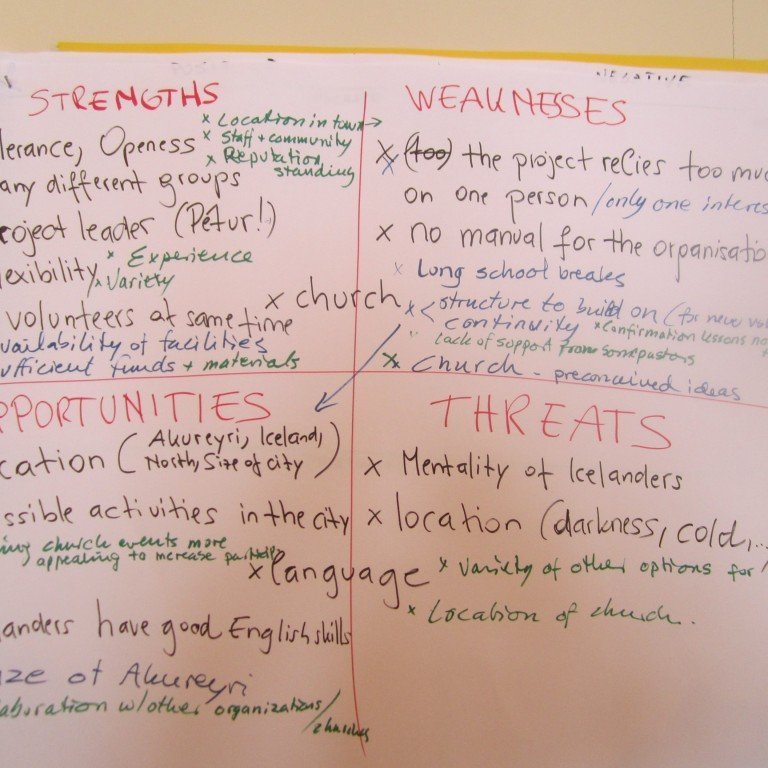 NEGATIVE
STRENGTHS
lerance, Openess
any different groups
roject leader (Pétur!)
exibility
volunteers at same time
vailability of facilities
ufficient funds + materials
x Location in town →
x Staff + community
x Reputation,
standing
x Experience
x Variety
x church
WEAKNESSES
x (too) the project relies too muc
on one person /only one interes
x no manual for the organisatio
x Long school breaks
x < structure to build on (for new vol
continuity x Confirmation lessons no
lack of support from some pastors
x Church - preconceived ideas
PPORTUNITIES
cation (Akureyri, Iceland,
North, Size of city)
ssible activities in the city
ing church events more
appealing to increase
x language
anders have good English skills
ize of Akureyri
aboration w/other organizations/
churches
THREATS
x Mentality of Icelanders
x location (darkness, cold,...
x Variety of other options for
x Location of church.